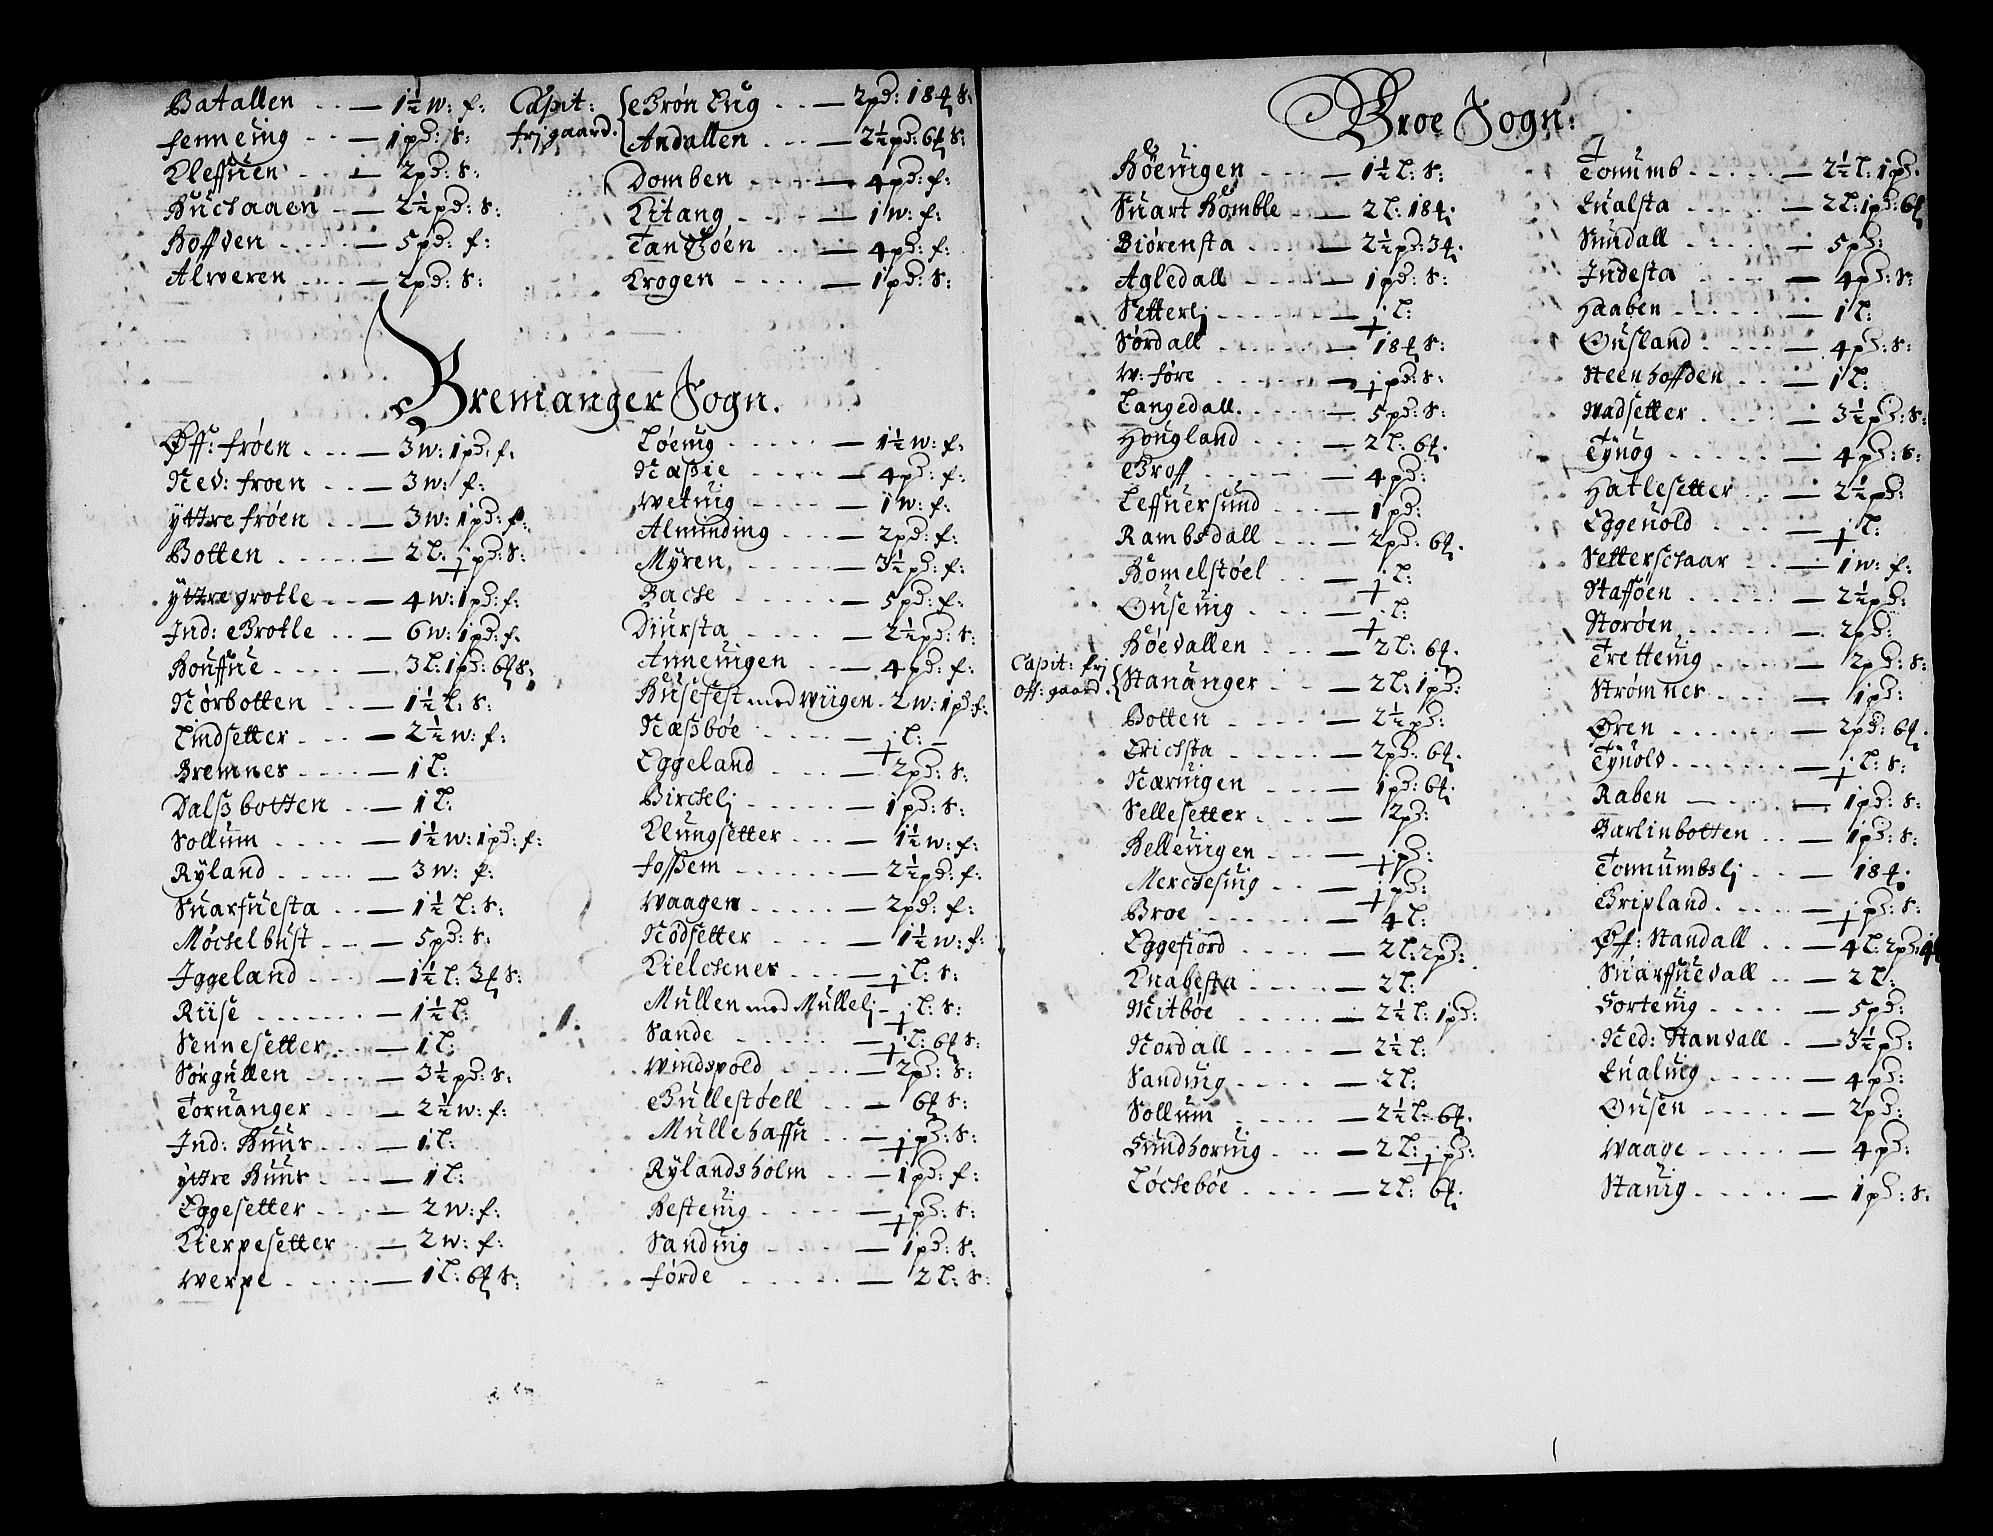 Batallen . . — 1½ w: f:
fenneuig . . — 1 pd: S:
Kleffuen . . — 2 pd: S:
Buchaaen . — 2½ pd: S:
Hoffden . . . — 5 pd: f:
Alveren . . — 2 pd: S:
Capit: frj gaard. { Grøn Eng . . — 2 pd: 18 S:
Andallen . . — 2½ pd: 6 S:
Domben — 4 pd: f:
Kitang — 1 w: f:
— 4 pd: f:
Krogen — 1 pd: S:
Bremanger Sogn.
Øff: frøen . . . — 3 w: 1 pd: f:
Ned: froen . . — 3 w: f:
yttre frøen . . — 3 w: 1 pd: f:
Botten . . . . — 2 l: ½ pd: S:
yttre grotle . . — 4 w: 1 pd: f:
Ind: Grotle . . — 6 w: 1 pd: f.
Houffue . . . — 3 l: 1 pd: 6 S:
Nørbotten . . — 1½ l: S:
Lindsetter . . . — 2½ w: f:
Bremnes . . . — 1 l:
Dalsbotten . . — 1 l:
Sollum . . . . — 1½ w: 1 pd: f:
Ryland . . . . — 3 w: f:
Suarfuesta . . — 1½ l: S:
Møchelbust . . — 5 pd: S:
Iggeland . . . — 1½ l: 3 S:
Riise . . . . . — 1½ l:
Sennesetter . . — 1 l:
Sørgullen . . . — 3½ pd: S:
Tornanger . . — 2½ w: f:
Ind: Huus . . — 1 l:
yttre Huus . . — 1 l:
Eggesetter . . . — 2 w: f:
Kierpesetter . . — 2 w: f:
Werpe . . . . — 1 l: 6 S:
Løeuig . . . . — 1½ w: f:
Naßie . . . . — 4 pd: f:
Wetuig . . . — 1 w: f:
Alminding . . . — 2 pd: f:
Myren . . . . — 3½ pd: f:
Bache . . . . — 5 pd: f:
Diursta . . . . — 2½ pd: S:
Anneuigen . . — 4 pd: f:
Husefest med Wiigen - 2 w: 1 pd: f:
Næßbøe . . . — ½ l: —
Eggeland . . . — 2 pd: S:
Birchelj . . . . — 1 pd: S:
Klungsetter . . . — 1½ w: f:
foßem . . . . — 2½ pd: f:
Waagen . . . . — 2 pd: f:
Nødsetter . . . — 1½ w: f:
Kielchenes . . . — ½ l: S:
Mullen med Mullelj - ½ l: S:
Sande . . . . — ½ l: 6 S:
Windspold . . . — 2 pd: S:
Gullestøell . . — 6 S:
Mullehaffn . . — ½ pd: S:
Rylandsholm . . — 1 pd: f:
Hesteuig . . . . — ½ pd: S:
Sanduig . . . — 1 pd: S:
førde . . . . — 2 l: S:
Broe Sogn:
Høeuigen . . . — 1½ l: S:
Suart Homble . . — 2 l: 18
Biørensta . . . — 2½ pd: 3
Agledall . . . — 1 pd: S:
Setterlj . . . . — ½ l:
Sørdall . . . . — 18 S:
W: føre . . . . — ½ pd: S:
Langedall . . . — 5 pd: S:
Hougland . . . — 2 l: 6
Groff . . . . — 4 pd:
Leffuersund . . — 1 pd:
Rambsdall . . — 2 pd: 6
Homelstøel . . — ½ l:
Ouseuig . . . — ½ l:
Høedallen . . — 2 l: 6
Capit: frj
Off: gaard. { Stananger . . — 2 l: 1 pd:
Botten . . . . — 2½ pd:
Erichsta . . . . — 2 pd: 6
Næruigen . . . — 1 pd: 6
Sellesetter . . . — 2 pd:
Helleuigen . . . — ½ pd:
Merchesuig . . — ½ pd:
Broe . . . . — 4 l:
Eggefiord . . . — 2 l: 2 pd:
Knabesta . . . — 2 l:
Meitbøe . . . . — 2½ l: 1 pd:
Nordall . . . . — 2½ l:
Sanduig . . . . — 2 l:
Sollum . . . . — 2½ l: 6
Sundhoruig . . — 2 l: ½ pd:
Løchebøe . . . . — 2 l: 6
Tonumb . . . . — 2½ l: 1 pd.
Kualsta . . . . — 2 l: 1 pd: 6
Sundall . . . . — 5 pd:
Indesta . . . . — 4 pd: S:
Haaben . . . . — 1 l:
Ousland . . . . — 4 pd: S:
Steenhoffden . . — 1 l:
Wadsetter . . . — 3½ pd: S:
Tynog . . . . . — 4 pd: S:
Hatlesetter . . — 2½ pd:
Eggeuold . . . — ½ l:
Setterschaar . . — 1 w: f:
Stafføen . . . . — 2½ pd:
Storøen . . . . — 2 pd:
Tretteuig . . . — 2 pd: S:
Strømnes . . . — 1 pd:
Øren . . . . . — 2 pd: 6
Tyuold . . . . . — ½ l: S:
Raben — — 1 pd: S:
Barlinbotten . . — 1 pd: S:
Tonnumbslj . . — 18
Gripland . . . . — ½ pd: S:
Øf: Standall . . — 4 l: 2 pd:
Suarffuedall . . — 2 l:
Sorteuig . . . . — 5 pd:
Ned: Standall . — 3½ pd:
Kualuig . . . . — 4 pd:
Ousen . . . . . — 2 pd:
Waage . . . . . — 4 pd:
Stauig . . . . . — 1 pd: S: